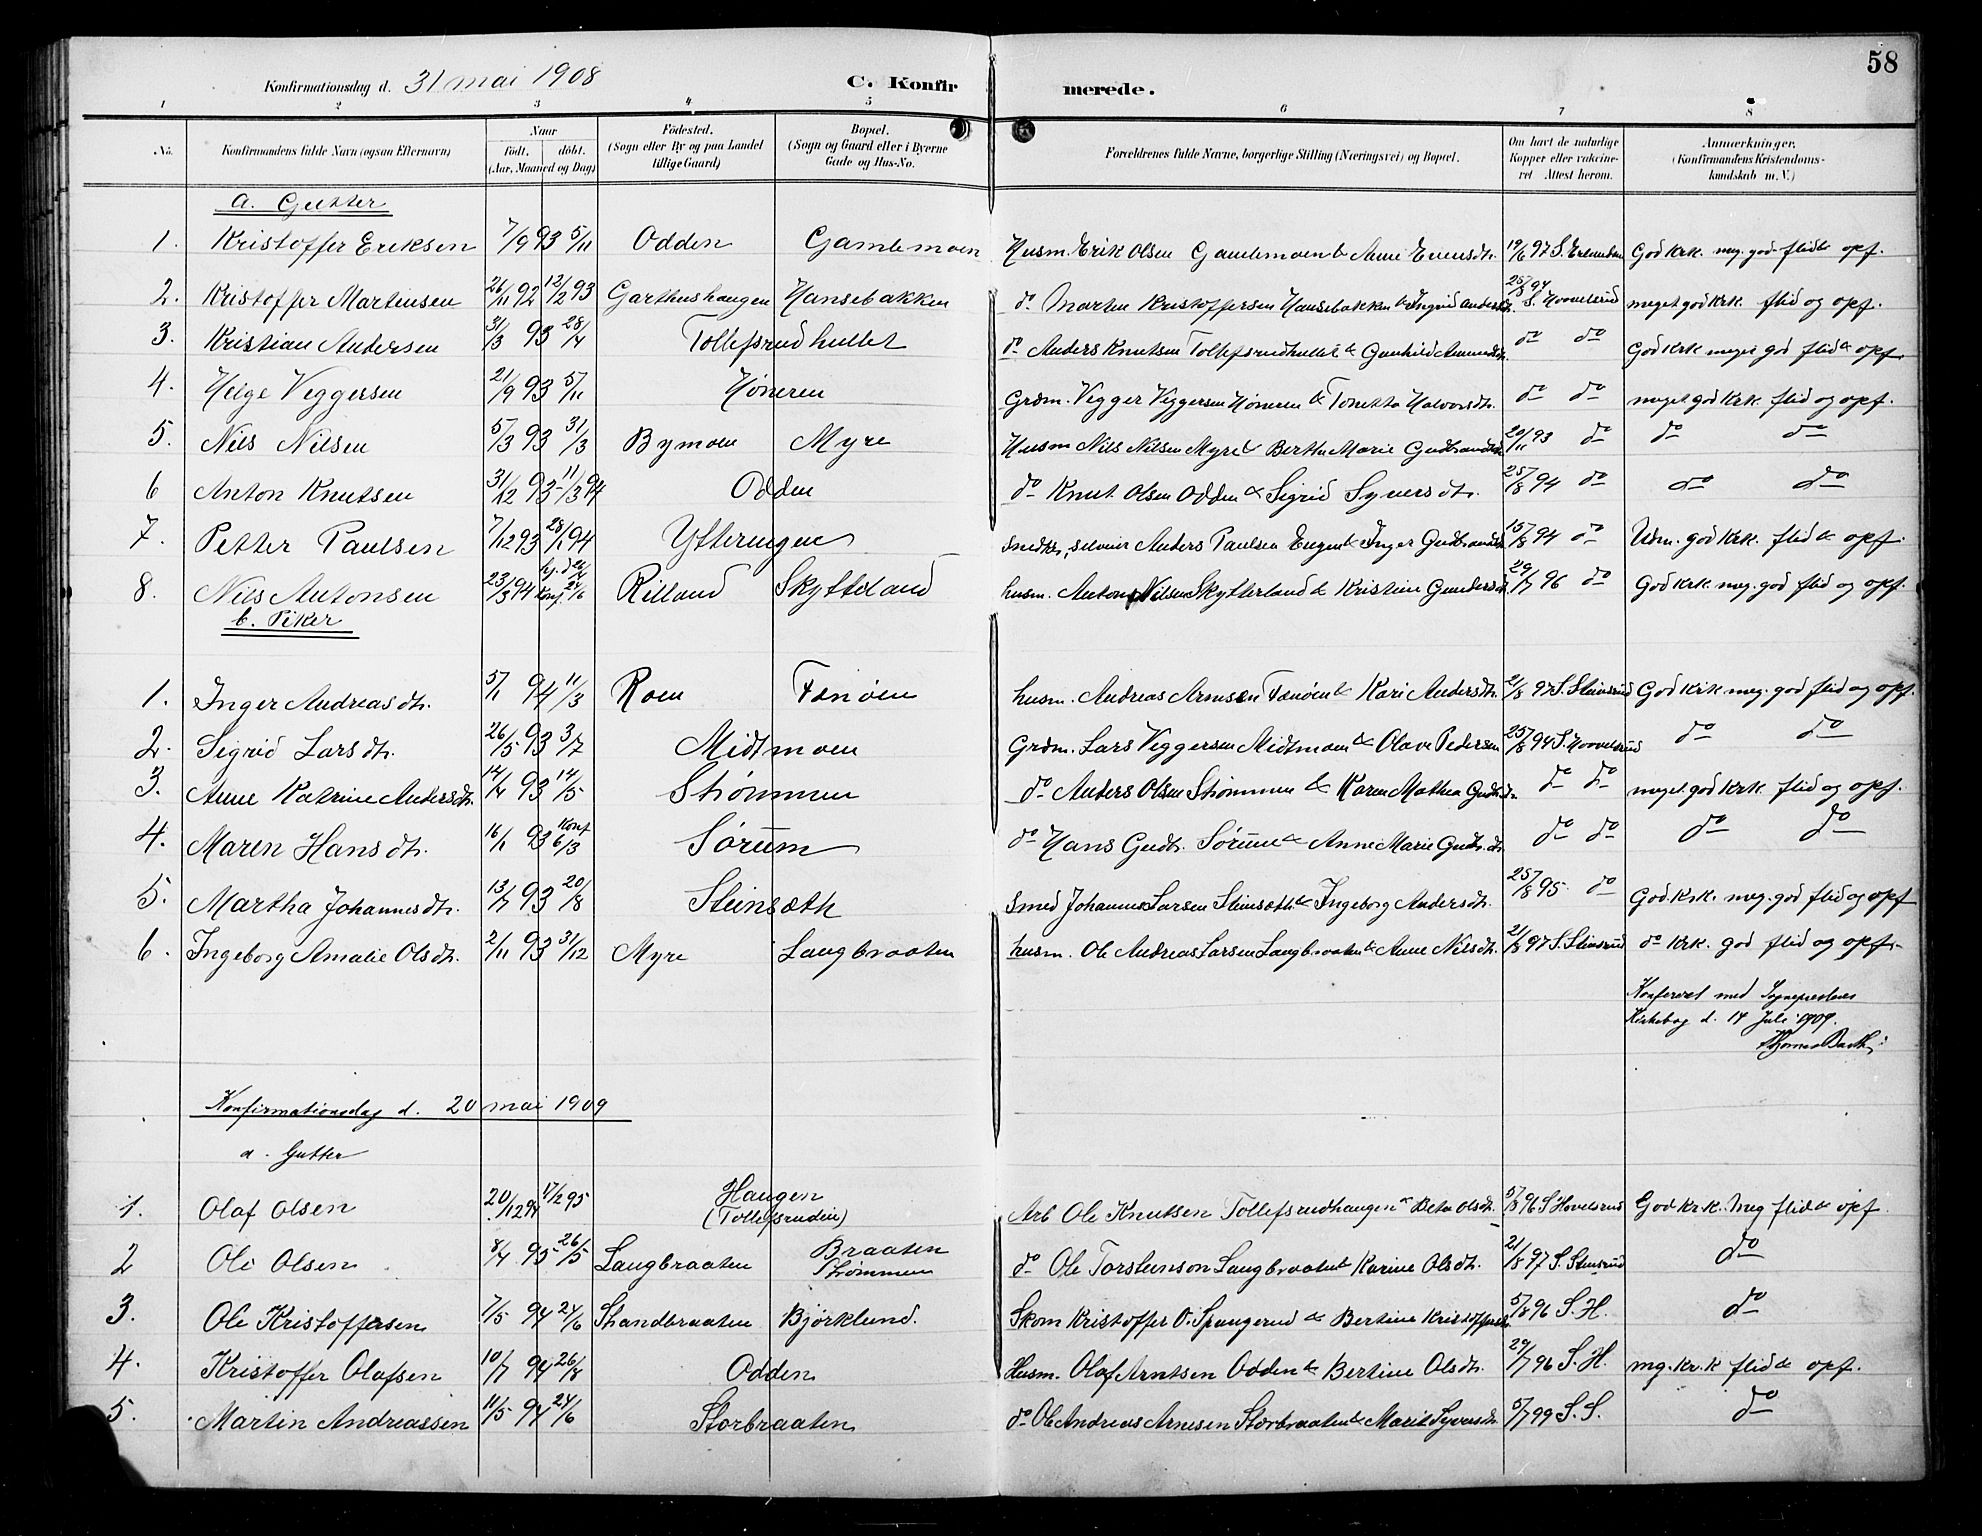 58
Konfirmationsdag d. 31 mai 1908 C. Konfirmerede.
1 2 3 4 5 6 7 8
No. Konfirmandens fulde Navn (ogsaa Efternavn) Naar født, døbt. (Aar, Maaned og Dag) Fødested. (Sogn eller By og paa Landet tillige Gaard) Bopæl. (Sogn og Gaard eller i Byerne Gade og Hus-No. Forældrenes fulde Navne, borgerlige Stilling (Næringsvei) og Bopæl. Om havt de naturlige Kopper eller vaccineret Attest herom. Anmærkninger. (Konfirmandens Kristendomskundskab m. V.)
a. Gutter
1. Kristoffer Eriksen 7/9 93 5/11 Odden Gamlemoen Husm. Erik Olsen Gamlemoen & Anne Evensdtr. 19/6 97 S. God krk. meg. god flid & opf.
2. Kristoffer Martinsen 26/11 92 12/2 93 Garthushaugen Hansebakken do Martin Kristoffersen Hansebakken & Ingrid Andersdtr. 25/8 94 S. Hovelsrud meget god krk. flid og opf.
3. Kristian Andersen 31/3 93 28/4 Tollefsrudhullet do Anders Knutsen Tollefsrudhullet & Gunhild Amundsdtr. do do God krk meget god flid & opf.
4. Helge Veggersen 21/9 93 5/11 Høneren Grdm. Vegger Veggersen Høneren & Tonetta Halvorsdtr. do do meget god krk. flid og opf.
5. Nils Nilsen 5/3 93 31/3 Bymoen Myre Husm Nils Nilsen Myre & Berthe Marie Gudbrandsdtr 20/11 93 do do do
6 Anton Knutsen 31/12 93 11/3 94 Odden do Knut Olsen Odden & Sigrid Syversdtr. 25/8 94 do do do
7. Petter Paulsen 7/12 93 28/1 94 Ytteringen Anders Paulsen & Inger Gudbrandsdtr 15/8 94 do Udm. god krk. flid & opf.
8. Nils Antonsen 23/3 94 hj. d. 24/4 Konf. 24/6 Rilland Skytteland husm. Anton Nilsen Skytterland & Kristine Gundersdtr 29/7 96 do God krk meg. god flid og opf.
b. Piker
1. Inger Andreasdtr. 5/1 94 11/3 Roen Fanøen husm. Andreas Arnesen Fanøen & Kari Andersdtr. 21/8 97 S. Stensrud God krk meg. god flid og opf.
2. Sigrid Larsdtr. 26/5 93 3/7 Midtmoen Grdm. Lars Veggersen Midtmoen & Olave Pedersen 25/8 94 S. Hovelsrud do do
3. Anne Katrine Andersdtr. 14/4 93 14/5 Strømmen do Anders Olsen Strømmen & Karen Mathea Gudbr.dtr do do meget god krk flid og opf.
4. Maren Hansdtr. 16/1 93 Konf 6/3 Sørum do Hans Gudbr. Sørum & Anne Marie Gudbr.dtr. do do do do
5. Martha Johannesdtr. 13/7 93 20/8 Steinsæth Smed Johannes Larsen Steinsæth & Ingeborg Andersdtr. 25/8 95. do God krk. meg. god flid og opf
6. Ingeborg Amalie Olsdtr. 2/11 93 31/12 Myre Langbraaten husm. Ole Andreas Larsen Langbraaten & Anne Nilsdtr. 21/8 97 S. Stensrud do krk. god flid og opf.
Konferert med Sogneprestens
Kirkebog d. 14 Juli 1909.
Thomas Barth
Konfirmationsdag d. 20 mai 1909
a. Gutter
1. Olaf Olsen 20/12 94 17/2 95 Haugen (Tollefsrudeie) Arb Ole Knutsen Tollefsrudhaugen & Beta Olsdtr. 5/8 96 S Hovelsrud God kr.k. Meg flid & opf.
2 Ole Olsen 8/4 95 26/5 Langbraaten Braaten Strømmen do Ole Torstensen Langbraaten & Karine Olsdtr. 21/8 97 S. Stensrud do
3. Ole Kristoffersen 7/5 94 24/6 Strandbraaten Bjørklund. Skom Kristoffer O. Spangerud & Bertine Kristoffersdtr 5/8 96 S. H. do
4. Kristoffer Olafsen 10/7 94 26/8 Odden Husm. Olaf Arntsen Odden & Bertine Olsdtr. 29/7 96 S. H. mg. kr.k flid & opf.
5. Martin Andreassen 11/5 94 24/6 Storbraaten do Ole Andreas Arnesen Storbraaten & Marit Syversdtr 5/7 99 S. S. do